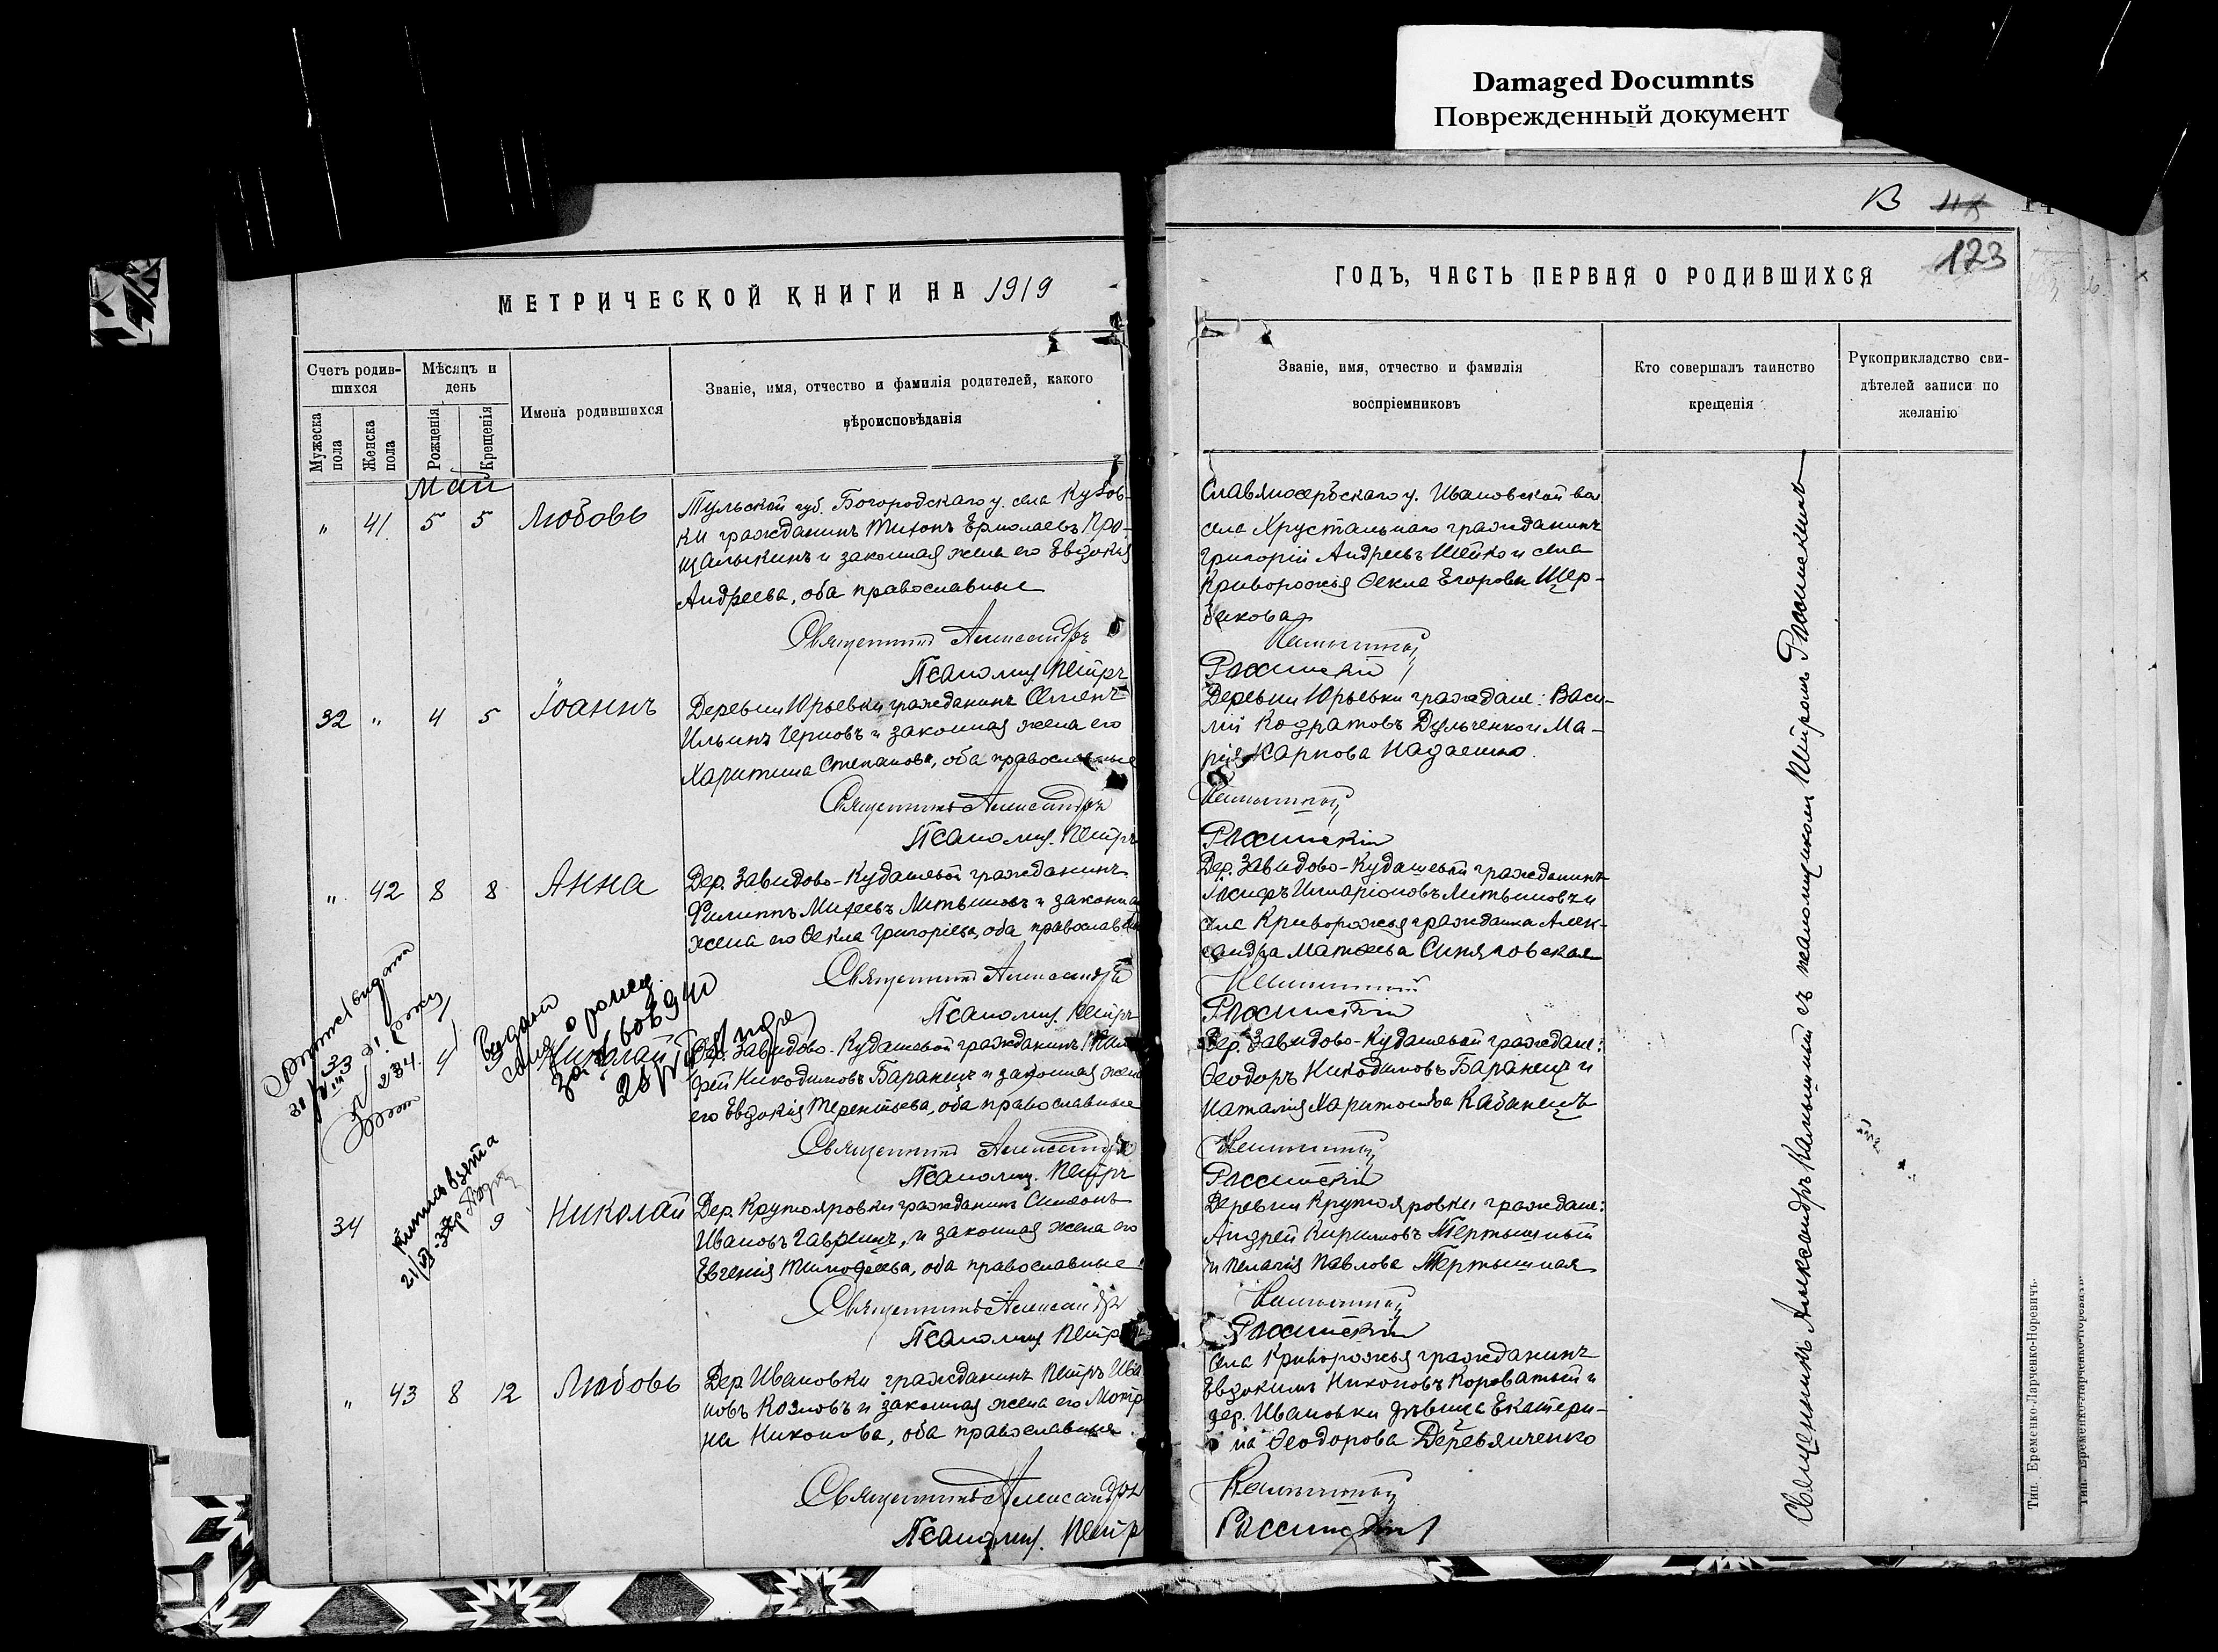 Damaged Documnts
Поврежденный документ
В
123
МЕТРИЧЕСКОЙ КНИГИ НА 1919
ГОДЪ, ЧАСТЬ ПЕРВАЯ О РОДИВШИХСЯ
Счетъ родив-
шихся
Мужеска
пола
Женска
пола
Мѣсяцъ и
день
Рожденія
Крещенія
Имена родившихся
Званіе, имя, отчество и фамилія родителей, какого
вѣроисповѣданія
Званіе, имя, отчество и фамилія
воспріемниковъ
Кто совершалъ таинство
крещенія
Рукоприкладство сви-
дѣтелей записи по
желанію
Май
" 41 5 5 Любовь
Тульской губ. Богородскаго у. села
ки гражданинъ Тихонъ Ермолаевъ Про-
щалыкинъ и законная жена его Евдокия
Андреева, оба православные
Священникъ Александръ
Псаломщ. Петръ
Славяносербскаго у. Ивановской вол.
села Хрустальнаго гражданинъ
Григорій Андреевъ Шейко и села
Криворожья Ѳекла Егорова Щер-
бакова
Калышный
Россинскій
32 " 4 5 Іоаннъ
Деревни Юрьевки гражданинъ Семенъ
Ильинъ Черновъ и законная жена его
Харитина Степанова, оба православные
Священникъ Александръ
Псаломщ. Петръ
Деревни Юрьевки граждане: Васи-
лий Кодратовъ Дульченко и Ма-
рія Карпова
Калышный
Россинскій
" 42 8 8 Анна
Дер. Завидово-Кудашевой гражданинъ
Филиппъ Михеевъ Литвиновъ и законна
жена его Ѳекла Григорьева, оба православн
Священникъ Александръ
Псаломщ. Петръ
Дер. Завидово-Кудашевой гражданинъ
Іосифъ Иларіоновъ Литвиновъ и
села Криворожья гражданка Алек-
сандра Матѳеева Синяговская
Калышный
Россинскій
33
Николай
Дер. Завидово-Кудашевой гражданинъ
фей Никодимовъ Баранецъ и законная жена
его Евдокія Терентьева, оба православные
Священникъ Александръ
Псаломщ. Петръ
Дер. Завидово-Кудашевой граждане:
Ѳеодоръ Никодимовъ Баранецъ и
Наталія Харитонова Кабанецъ
Калышный
Россинскій
34 9 Николай
Дер. Крутояровки гражданинъ Симеонъ
Ивановъ Гаврецъ, и законная жена его
Евгенія Тимоѳеева, оба православные
Священникъ Александръ
Псаломщ. Петръ
Деревни Крутояровки граждане:
Андрей Кириловъ Тертышный
и Пелагія Павлова Тертышная
Калышный
Россинскій
" 43 8 12 Любовь
Дер. Ивановки гражданинъ Петръ Ива
новъ Козловъ и законная жена его Мотр
на Никонова, оба православные
Священникъ Александръ
Псаломщ. Петр
села Криворожья гражданинъ
Евдокимъ Никоновъ Короватый и
дер. Ивановки дѣвица Екатери-
на Ѳеодорова Деревянченко
Калышный
Россинскій
Священникъ Александръ Калышный съ псаломщикомъ Петромъ Россинскимъ
Тип. Еременко-Ларченко-Норевичъ.